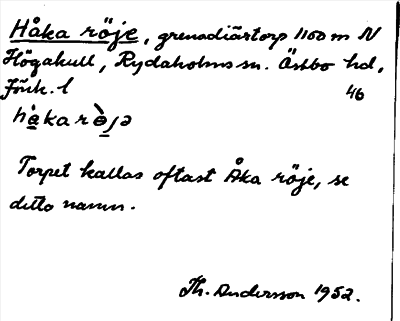 Håka röje, grenadiärtorp 1100 m N
Högakull, Rydaholms sn. Östbo hd,
Jönk. l
46
hà̱karò̱jə
Torpet kallas oftast Åka röje, se
ditto namn.
Th. Andersson 1952.